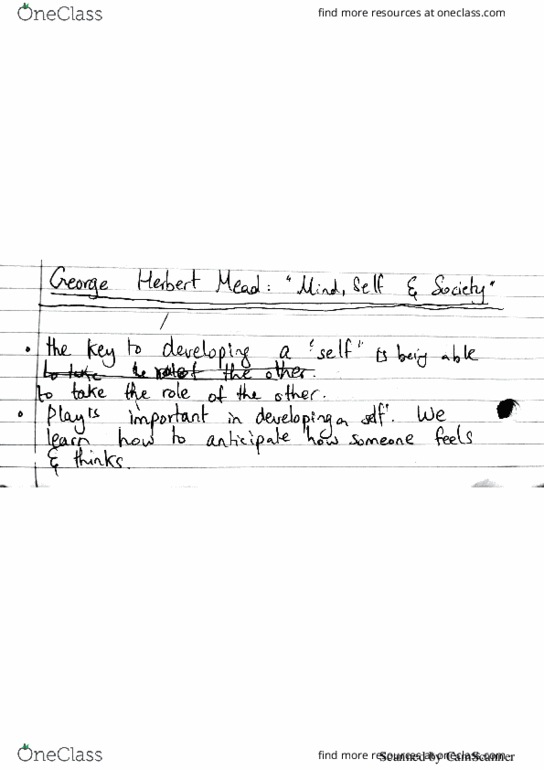 OneClass
find more resources at oneclass.com
George Herbert Mead: "Mind, Self & Society"
• the key to developing a "self" is being able
to take the role of the other.
to take the role of the other.
• Play is important in developing a self'. We
learn how to anticipate how someone feels
& thinks.
OneClass
find more resources at oneclass.com
Scanned by CamScanner